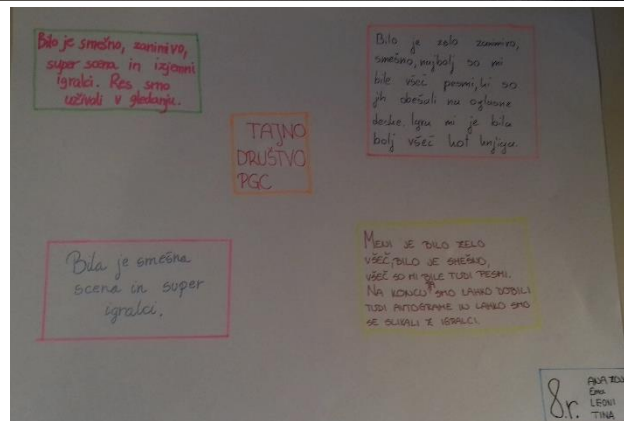 Bilo je smešno, zanimivo,
super scena in izjemni
igralci. Res smo
uživali v gledanju.
Bilo je zelo zanimivo,
smešno, najbolj so mi
bile všeč pesmi, ki so
jih obešali na oglasne
deske. Igra mi je bila
bolj všeč kot knjiga.
TAJNO
DRUŠTVO
PGC
Bila je smešna
scena in super
igralci.
MENI JE BILO ZELO
VŠEČ, BILO JE SMEŠNO,
VŠEČ SO MI BILE TUDI PESMI.
NA KONCU PA SMO LAHKO DOBILI
TUDI AVTOGRAME IN LAHKO SMO
SE SLIKALI Z IGRALCI.
8.r.
ANA
Ema
LEONI
TINA